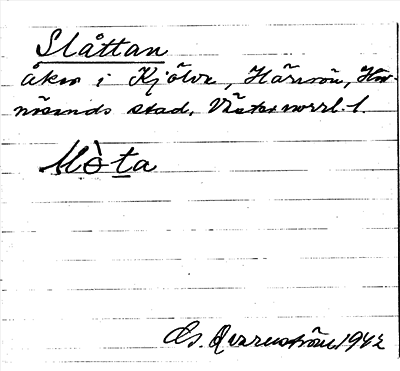 Slåttan
åker i Kjölve, Härnön, Här-
nösands stad, Västernorrl. l.
Mòta
Qvarnström 1942